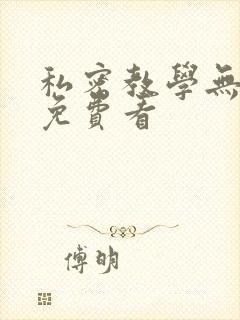 私密教學無
免費看
傅明